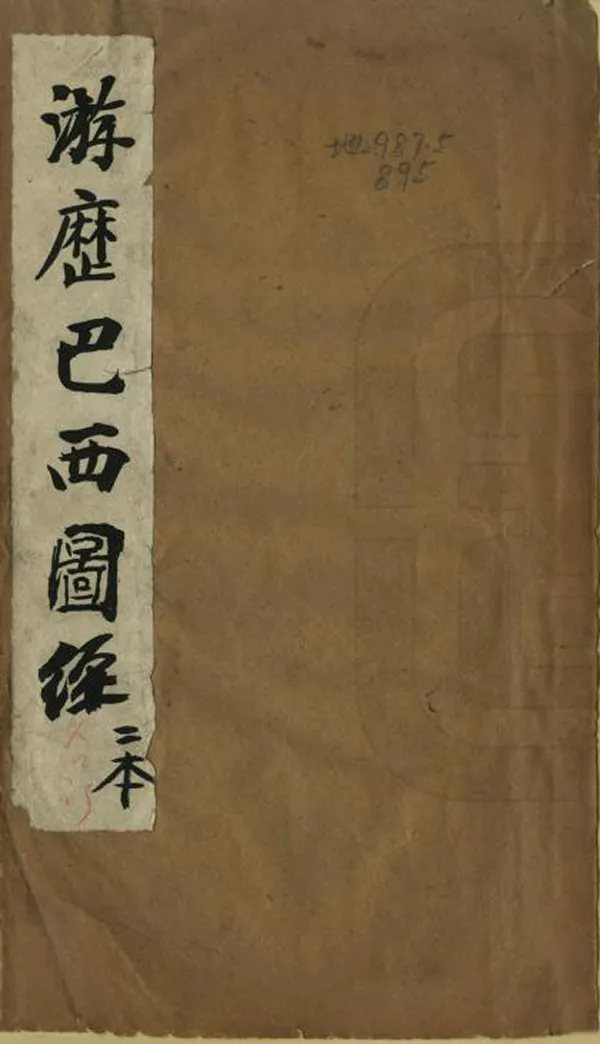 游歷巴西圖經
二本
地987.5
895